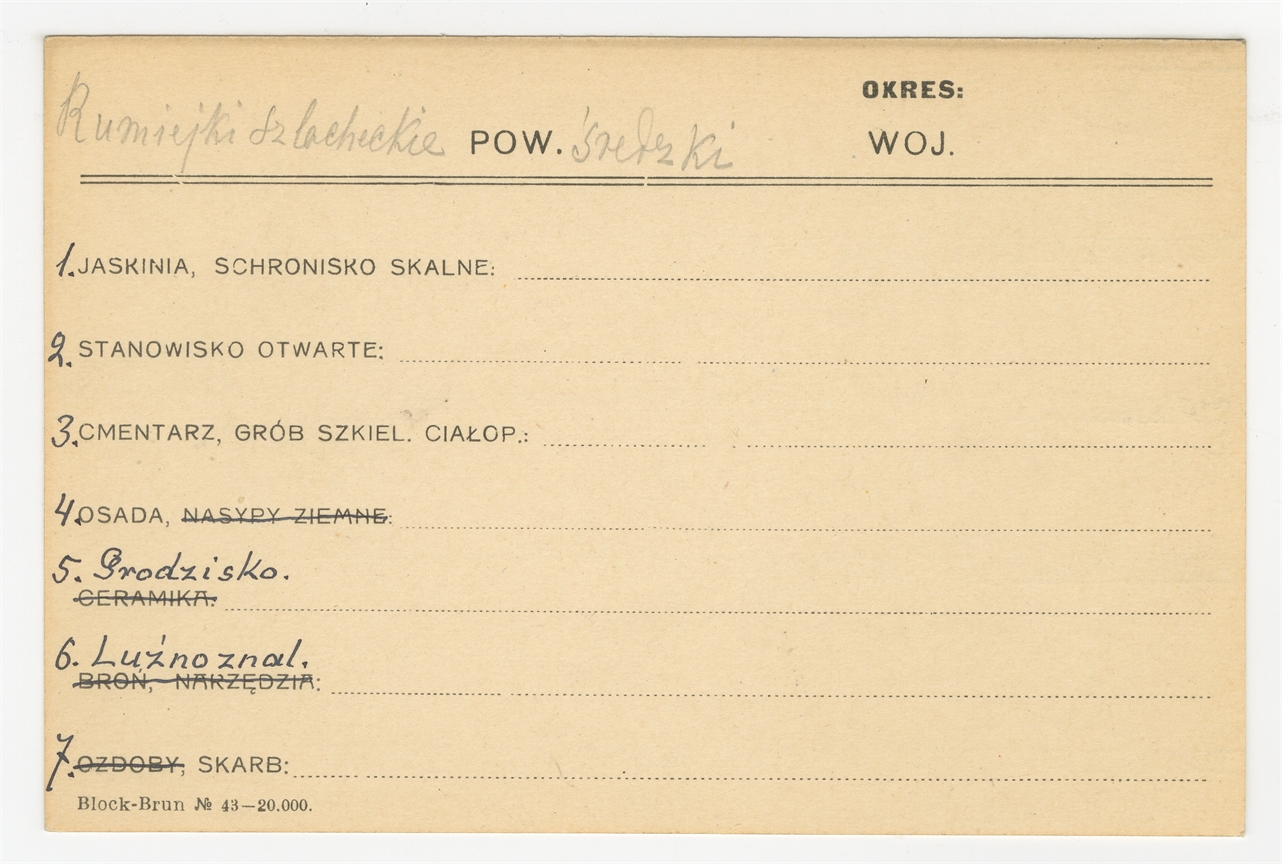 OKRES:
Rumiejki szlacheckie POW. średzki WOJ.
1. JASKINIA, SCHRONISKO SKALNE:
2. STANOWISKO OTWARTE:
3. CMENTARZ, GRÓB SZKIEL. CIAŁOP.:
4. OSADA, NASYPY ZIEMNE:
5. Grodzisko.
CERAMIKA:
6. Luźno znal.
BROŃ, NARZĘDZIA:
7. OZDOBY, SKARB:
Block-Brun № 43—20.000.